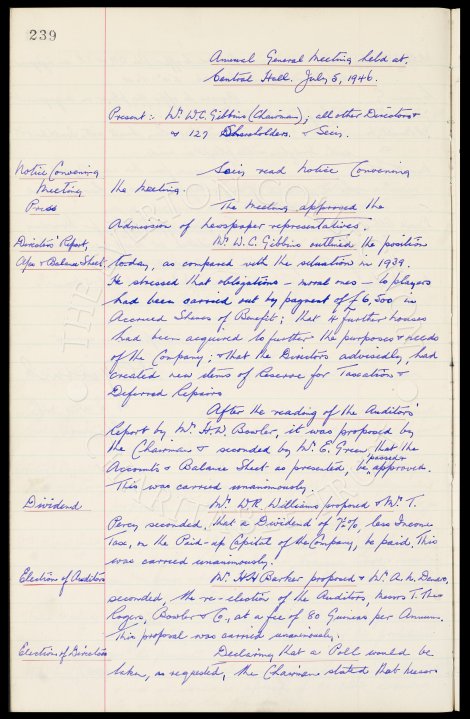 239
Annual General Meeting held at
Central Hall. July 5, 1946.
Present:- Mr. W.C. Gibbins (Chairman); all other Directors
& 127 Shareholders. & Secy.
Notice Convening
Meeting
Secy. read Notice Convening
the Meeting.
Press
The Meeting approved the
Admission of newspaper representatives.
Directors' Report,
A/cs & Balance Sheet.
Mr. W.C. Gibbins outlined the position
today, as compared with the situation in 1939.
He stressed that obligations - moral ones - to players
had been carried out by payment of £6,500 in
Accrued Shares of Benefit; that 4 further houses
had been acquired to further the purposes & needs
of the Company; & that the Directors advisedly had
created new items of Reserve for Taxation &
Deferred Repairs
After the reading of the Auditors'
Report by Mr. H.W. Bowler, it was proposed by
the Chairman & seconded by Mr. E. Green that the
Accounts & Balance Sheet as presented, be passed & approved.
This was carried unanimously.
Dividend
Mr. W.R. Williams proposed & Mr. T.
Percy seconded, that a Dividend of 7½%, less Income
Tax, on the Paid-up Capital of the Company, be paid. This
was carried unanimously.
Election of Auditors
Mr. H.H. Barker proposed & Mr. A.N.
seconded, the re-election of the Auditors, Messrs T. Theo
Rogers, Bowler & Co., at a fee of 80 Guineas per Annum.
This proposal was carried unanimously.
Election of Directors
Declaring that a Poll would be
taken, as requested, the Chairman stated that Messrs